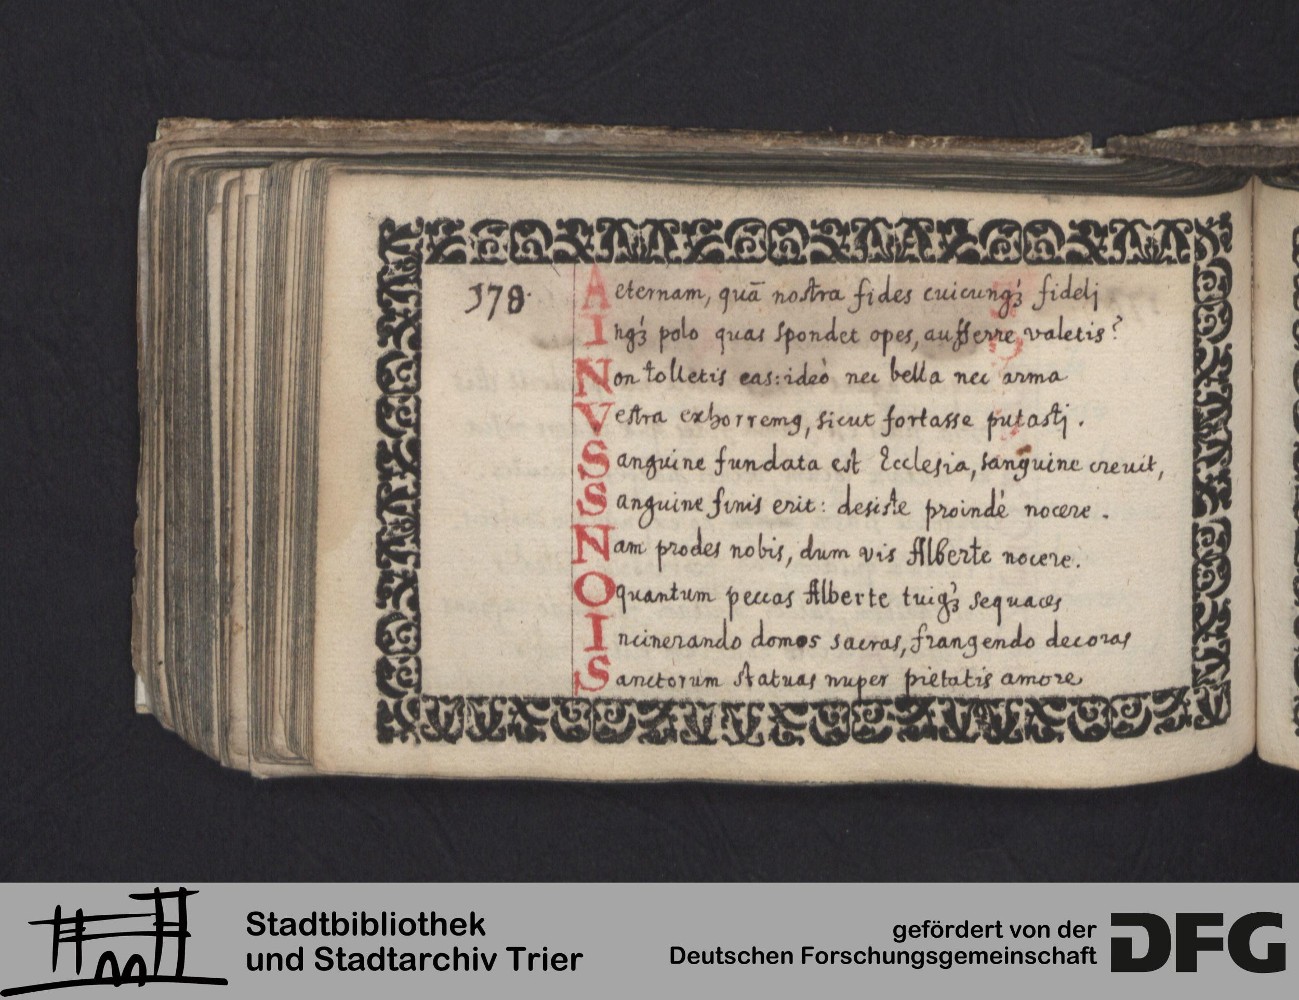 178.
Aeternam, quā nostra fides cuicunqȝ fidelj
Inqȝ polo quas spondet opes, aufferre valetis?
Non tolletis eas: ideò nec bella nec arma
Vestra exhorremꝯ, sicut fortasse putastj.
Sanguine fundata est Ecclesia, sanguine creuit,
Sanguine finis erit: desiste proindé nocere.
Nam prodes nobis, dum vis Alberte nocere.
O quantum peccas Alberte tuiqȝ sequaces
Incinerando domos sacras, frangendo decoras
Sanctorum statuas nuper pietatis amore
Stadtbibliothek
und Stadtarchiv Trier
gefördert von der
Deutschen Forschungsgemeinschaft
DFG